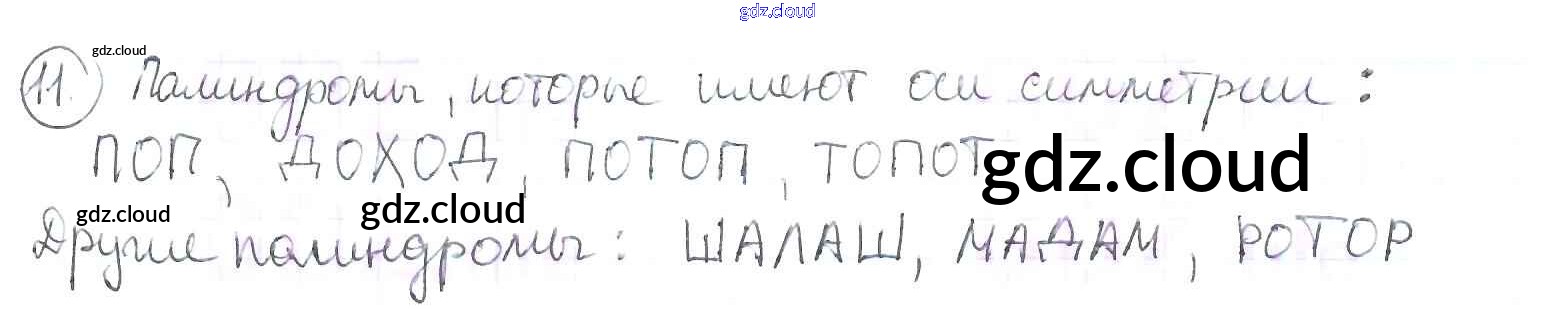 gdz.cloud
gdz.cloud
11. Палиндромы, которые имеют оси симметрии:
ПОП, ДОХОД, ПОТОП, ТОПОТ gdz.cloud
gdz.cloud gdz.cloud
Другие палиндромы: ШАЛАШ, МАДАМ, РОТОР